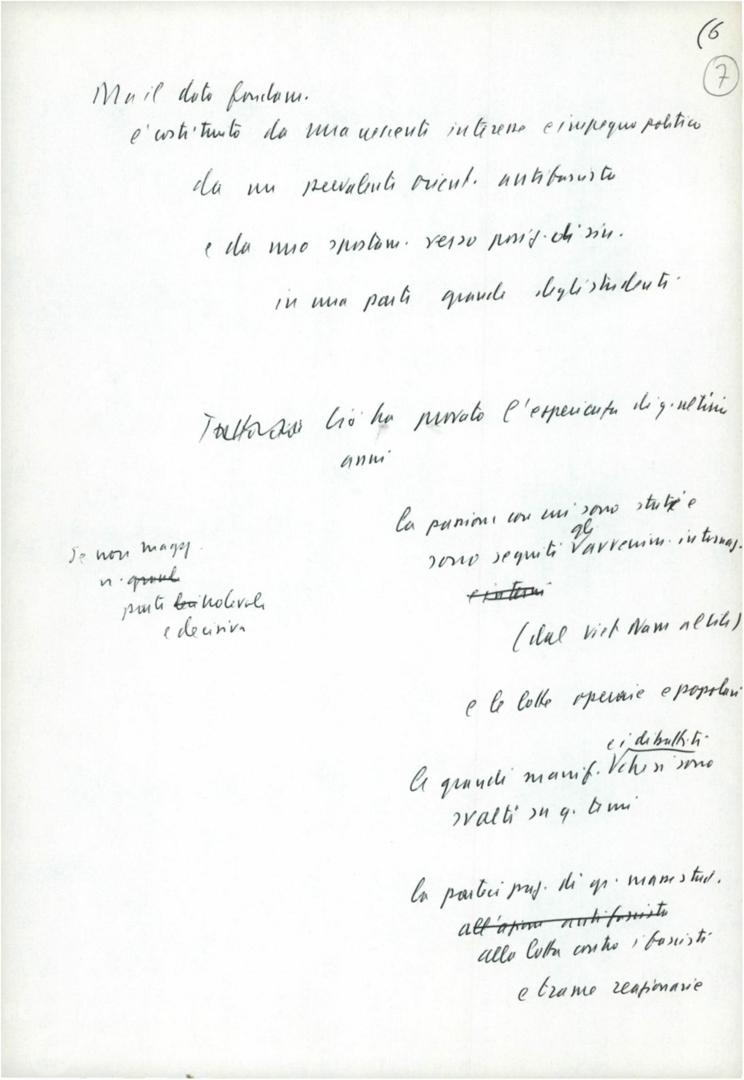 (6
7
Ma il dato fondam.
è costituito da un crescente interesse e impegno politico
da un prevalente orient. antifascista
e da uno spostam. verso posiz. di sin.
in una parte grande degli studenti.
Ciò ha provato l'esperienza di q. ultimi
anni
la passione con cui sono stati e
sono seguiti gli avvenim. internaz.
e interni
(dal Viet Nam al Cile)
e le lotte operaie e popolari
se non magg.
n.
parte notevole
e decisiva
e i dibattiti
le grandi manif. che si sono
svolti su q. temi
la partecipaz. di gr. masse stud.
all'azione antifascista
alla lotta contro i fascisti
e trame reazionarie